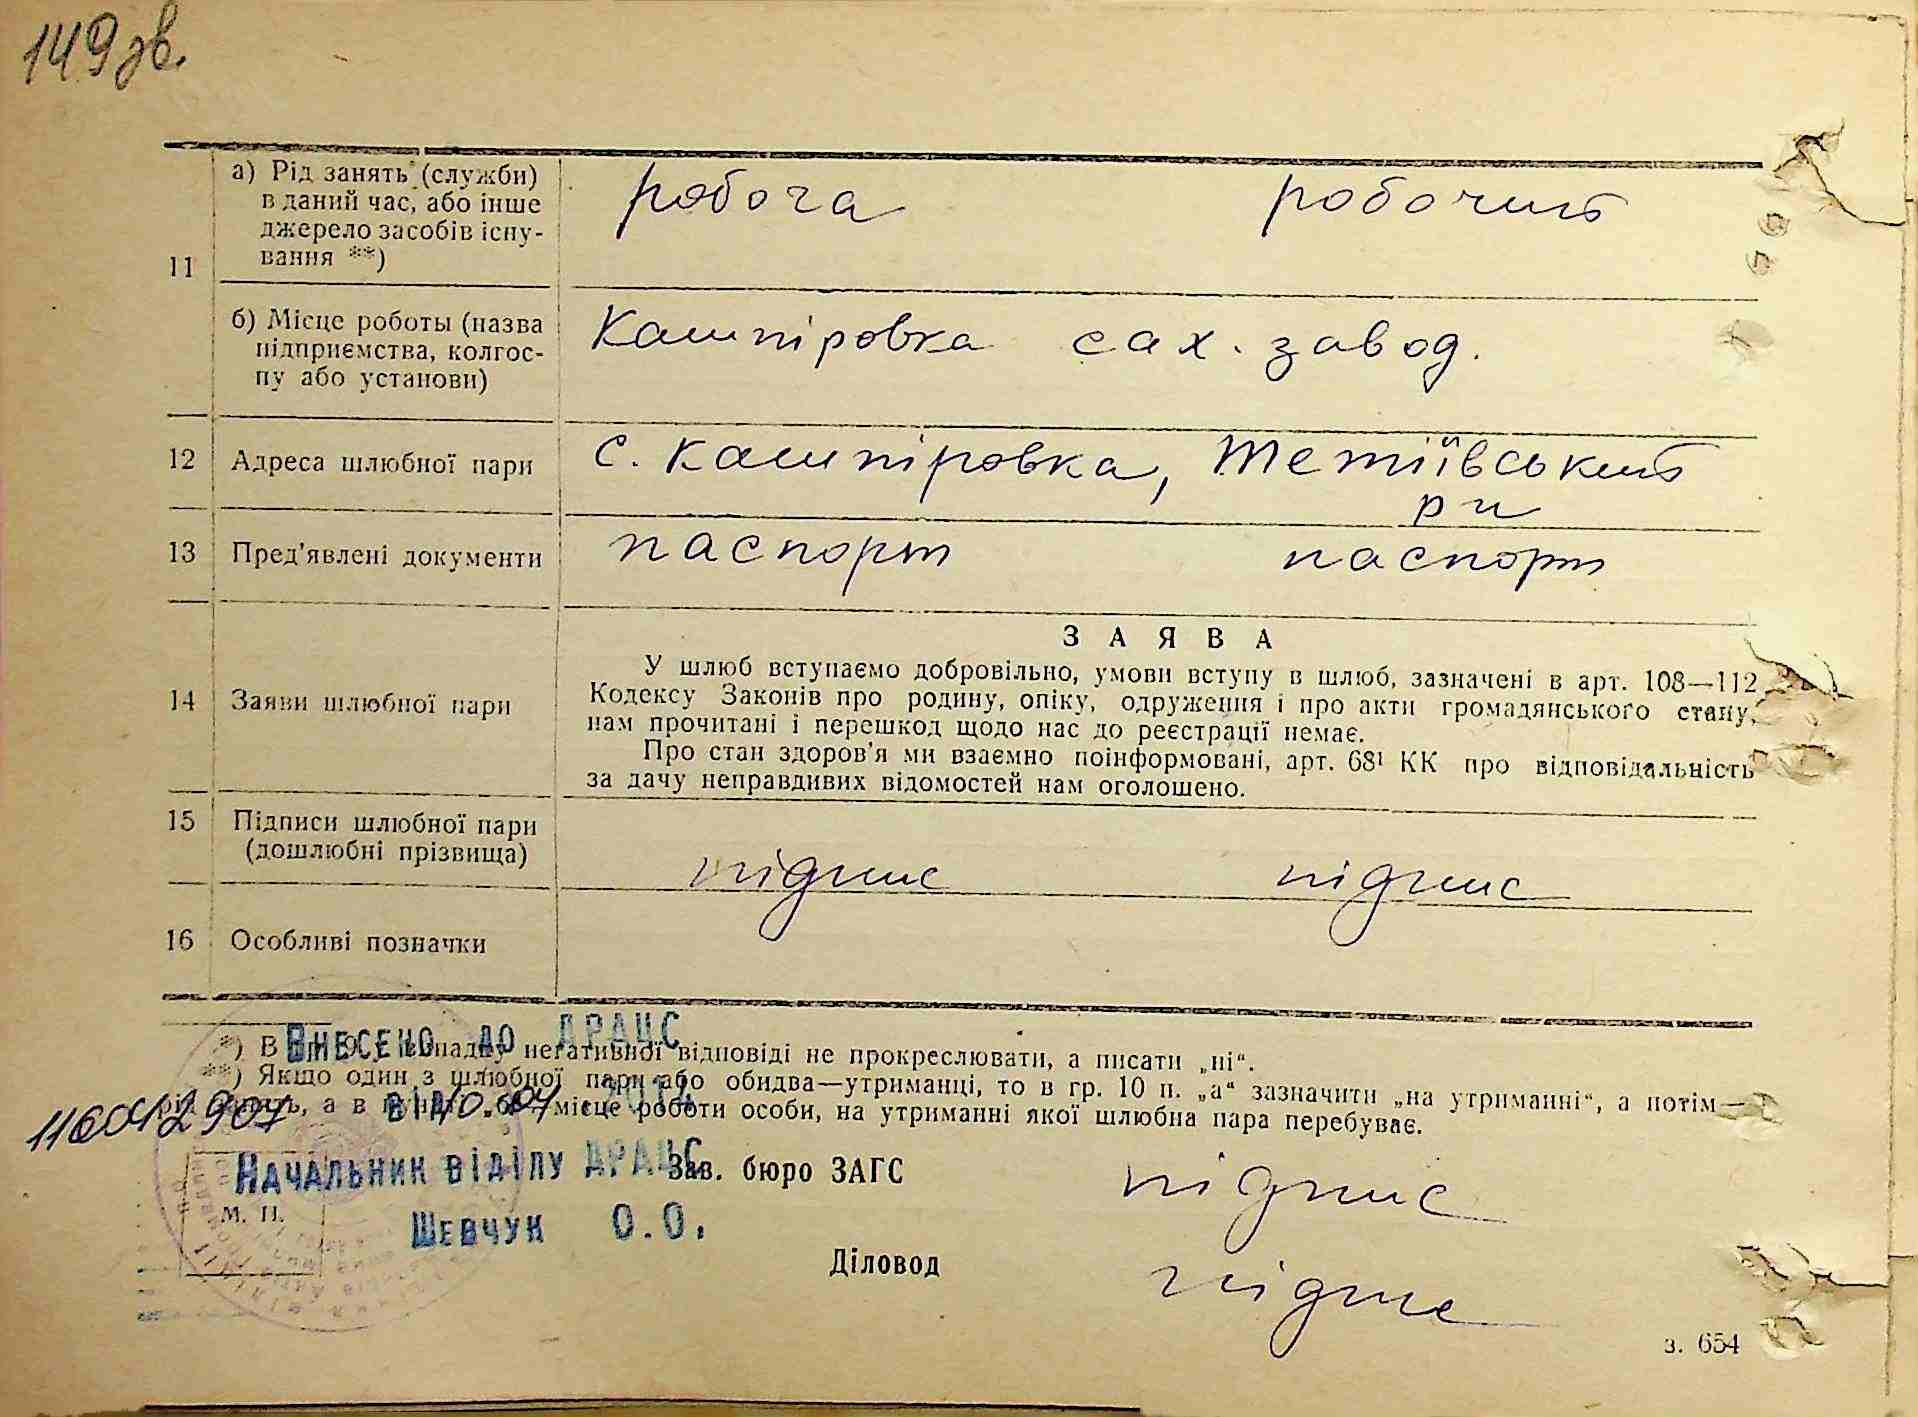 149 зв.
11
а) Рід занять (служби) в даний час, або інше джерело засобів існування **)
робоча робочий
б) Місце роботы (назва підприємства, колгоспу або установи)
Кашпіровка сах. завод.
12 Адреса шлюбної пари
с. Кашпіровка, Тетіївський
р н
13 Пред'явлені документи
паспорт паспорт
14 Заяви шлюбної пари
ЗАЯВА
У шлюб вступаємо добровільно, умови вступу в шлюб, зазначені в арт. 108—112
Кодексу Законів про родину, опіку, одруження і про акти громадянського стану,
нам прочитані і перешкод щодо нас до реєстрації немає.
Про стан здоров'я ми взаємно поінформовані, арт. 68¹ КК про відповідальність
за дачу неправдивих відомостей нам оголошено.
15 Підписи шлюбної пари
(дошлюбні прізвища)
підпис підпис
16 Особливі позначки
Внесено до ДРАЦС
*) В негативної відповіді не прокреслювати, а писати „ні“.
**) Якщо один з шлюбної пари або обидва—утриманці, то в гр. 10 п. „а“ зазначити „на утриманні“, а потім—
а в місце роботи особи, на утриманні якої шлюбна пара перебуває.
від
Начальник відділу ДРАЦС
Зав. бюро ЗАГС
підпис
М. П.
Шевчук О.О.
Діловод
підпис
з. 654